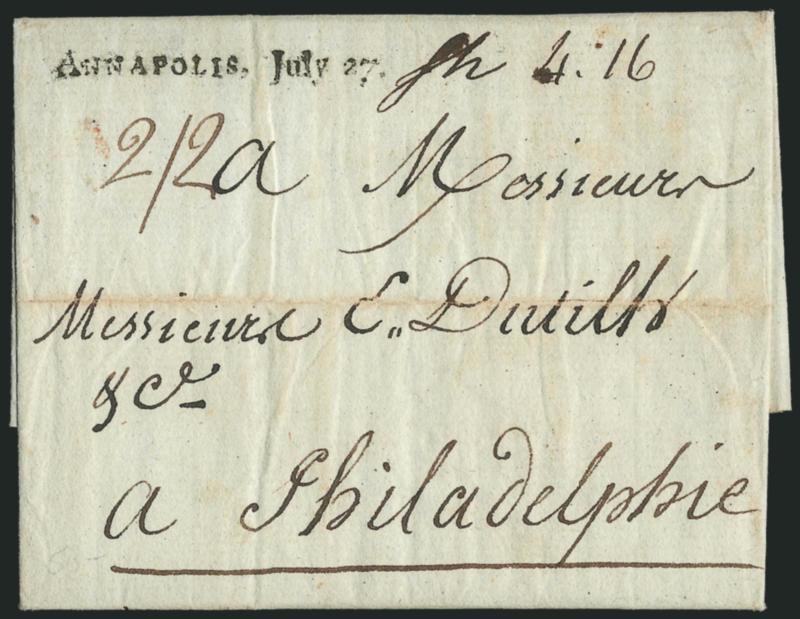 ANNAPOLIS, July 27. Sh 4. 16
2/2 a Messieurs
Messieurs E,, Dutilh
& Co
a Philadelphie